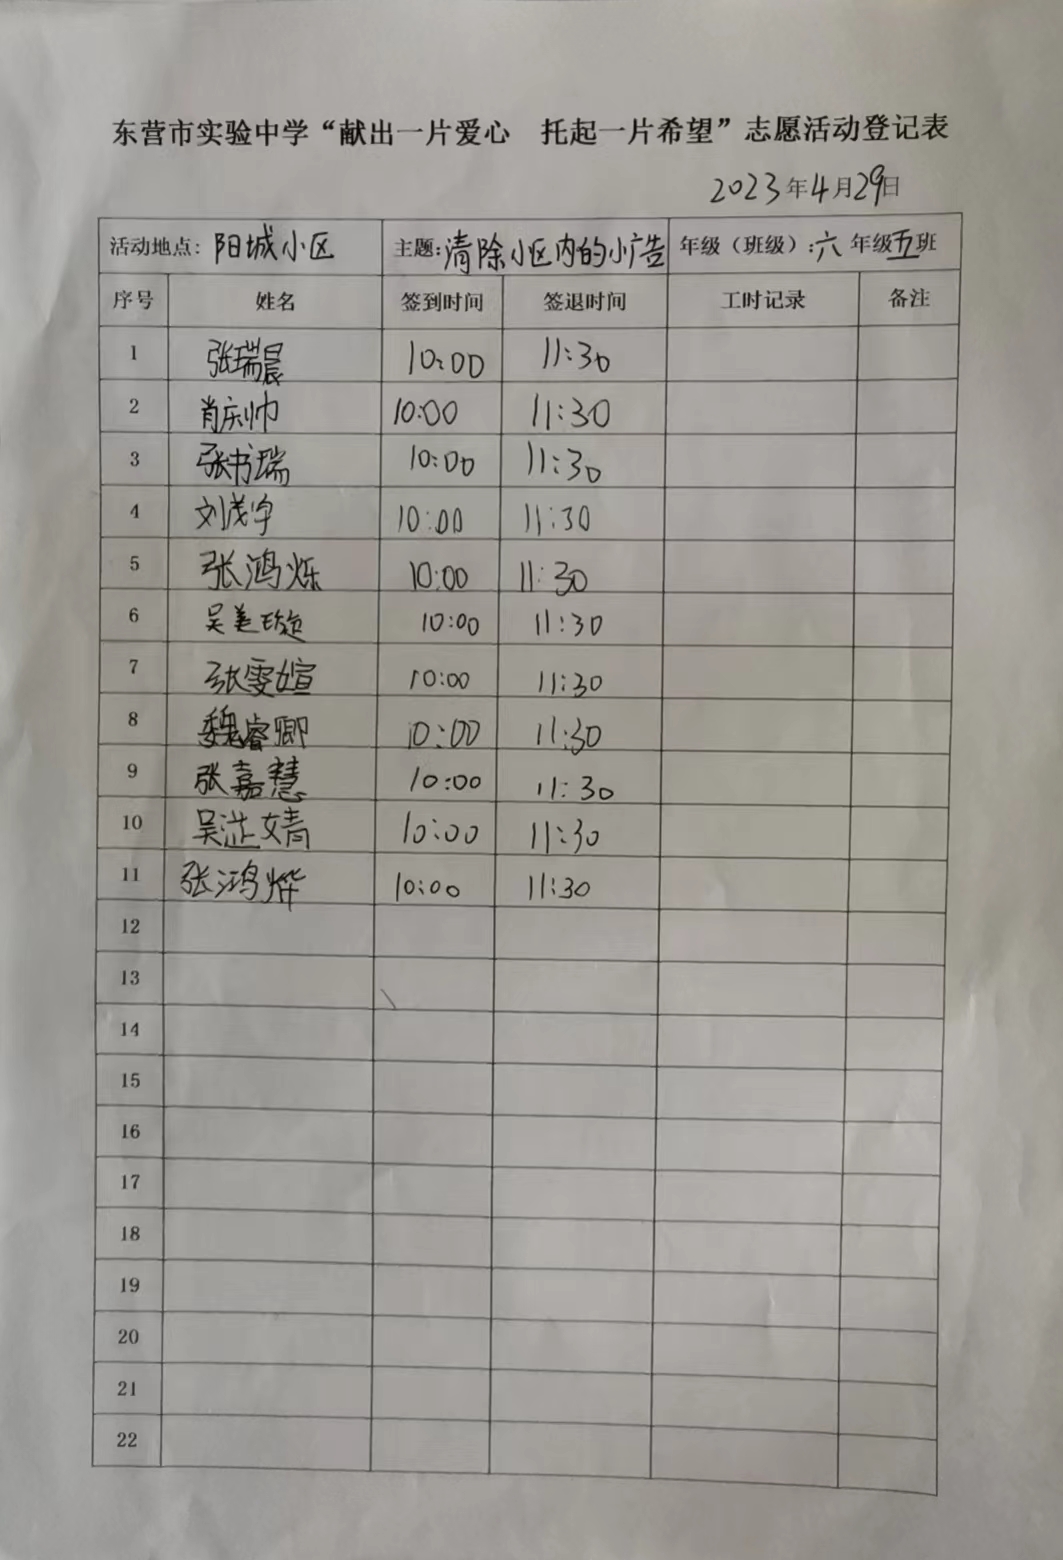 东营市实验中学“献出一片爱心 托起一片希望”志愿活动登记表
2023年4月29日
活动地点: 阳城小区 主题: 清除小区内的小广告 年级（班级）: 六年级五班
序号 姓名 签到时间 签退时间 工时记录 备注
1 张瑞晨 10:00 11:30
2 肖庆帅 10:00 11:30
3 张书瑞 10:00 11:30
4 刘茂宇 10:00 11:30
5 张鸿烁 10:00 11:30
6 吴美璇 10:00 11:30
7 张雯媗 10:00 11:30
8 魏睿卿 10:00 11:30
9 张嘉慧 10:00 11:30
10 吴芷婧 10:00 11:30
11 张鸿烨 10:00 11:30
12
13
14
15
16
17
18
19
20
21
22